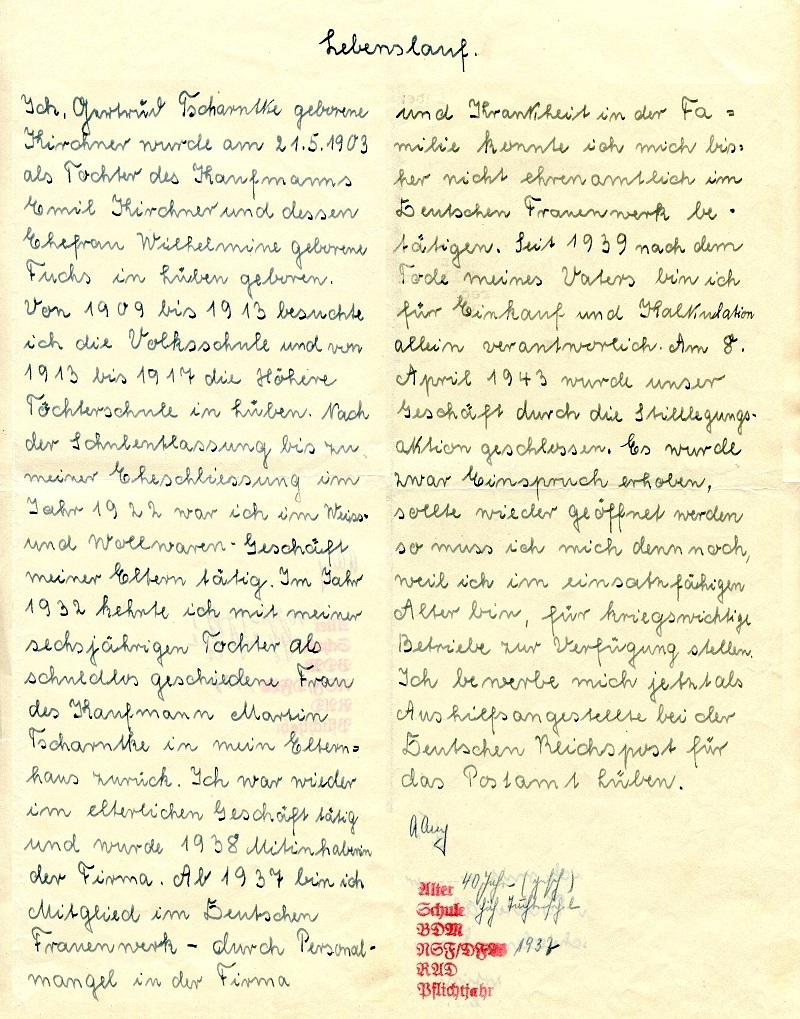 Lebenslauf.
Ich, Gertrud Tscharntke geborene
Kirchner wurde am 21.5.1903
als Tochter des Kaufmanns
Emil Kirchner und dessen
Ehefrau Wilhelmine geborene
Fuchs in Lüben geboren.
Von 1909 bis 1913 besuchte
ich die Volksschule und von
1913 bis 1917 die Höhere
Töchterschule in Lüben. Nach
der Schulentlassung bis zu
meiner Eheschliessung im
Jahr 1922 war ich im Weiss-
und Wollwaren-Geschäft
meiner Eltern tätig. Im Jahr
1932 kehrte ich mit meiner
sechsjährigen Tochter als
schuldlos geschiedene Frau
des Kaufmann Martin
Tscharntke in mein Eltern=
haus zurück. Ich war wieder
im elterlichen Geschäft tätig
und wurde 1938 Mitinhaberin
der Firma. Ab 1937 bin ich
Mitglied im Deutschen
Frauenwerk – durch Personal-
mangel in der Firma
und Krankheit in der Fa=
milie konnte ich mich bis=
her nicht ehrenamtlich im
Deutschen Frauenwerk be-
tätigen. Seit 1939 nach dem
Tode meines Vaters bin ich
für Einkauf und Kalkulation
allein verantworlich. Am 8.
April 1943 wurde unser
Geschäft durch die Stilllegungs-
aktion geschlossen. Es wurde
zwar Einspruch erhoben,
sollte wieder geöffnet werden
so muss ich mich dennoch,
weil ich im einsatzfähigen
Alter bin, für kriegswichtige
Betriebe zur Verfügung stellen.
Ich bewerbe mich jetzt als
Aushilfsangestellte bei der
Deutschen Reichspost für
das Postamt Lüben.
Alter 40
Schule
BDM
NSF/DFW 1937
RAD
Pflichtjahr